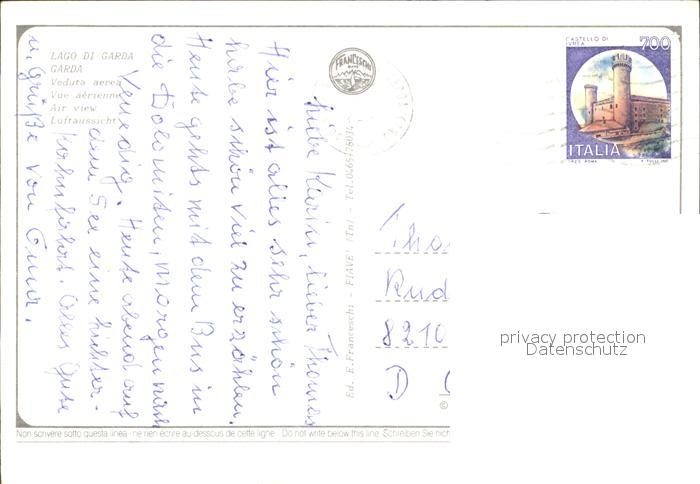 LAGO DI GARDA
GARDA
Veduta aerea
Vue aérienne
Air view
Luftaussicht
FRANCESCHI
CASTELLO DI
IVREA
700
ITALIA
Liebe Karin, lieber Thomas
Hier ist alles sehr schön
habe schon viel zu erzählen.
Heute gehts mit dem Bus in
die Dolomiten, morgen nach
Venedig. Heute abend auf
dem See eine Lichter-
kahnfahrt. Alles Gute
u. Grüße von Oma.
Ed. E. Franceschi - FIAVE' (Tn) - Tel.
Tho
Rud
8210
D
©
privacy protection
Datenschutz
Non scrivere sotto questa linea - ne rien écrire au-dessous de cette ligne - Do not write below this line. Schreiben Sie nich